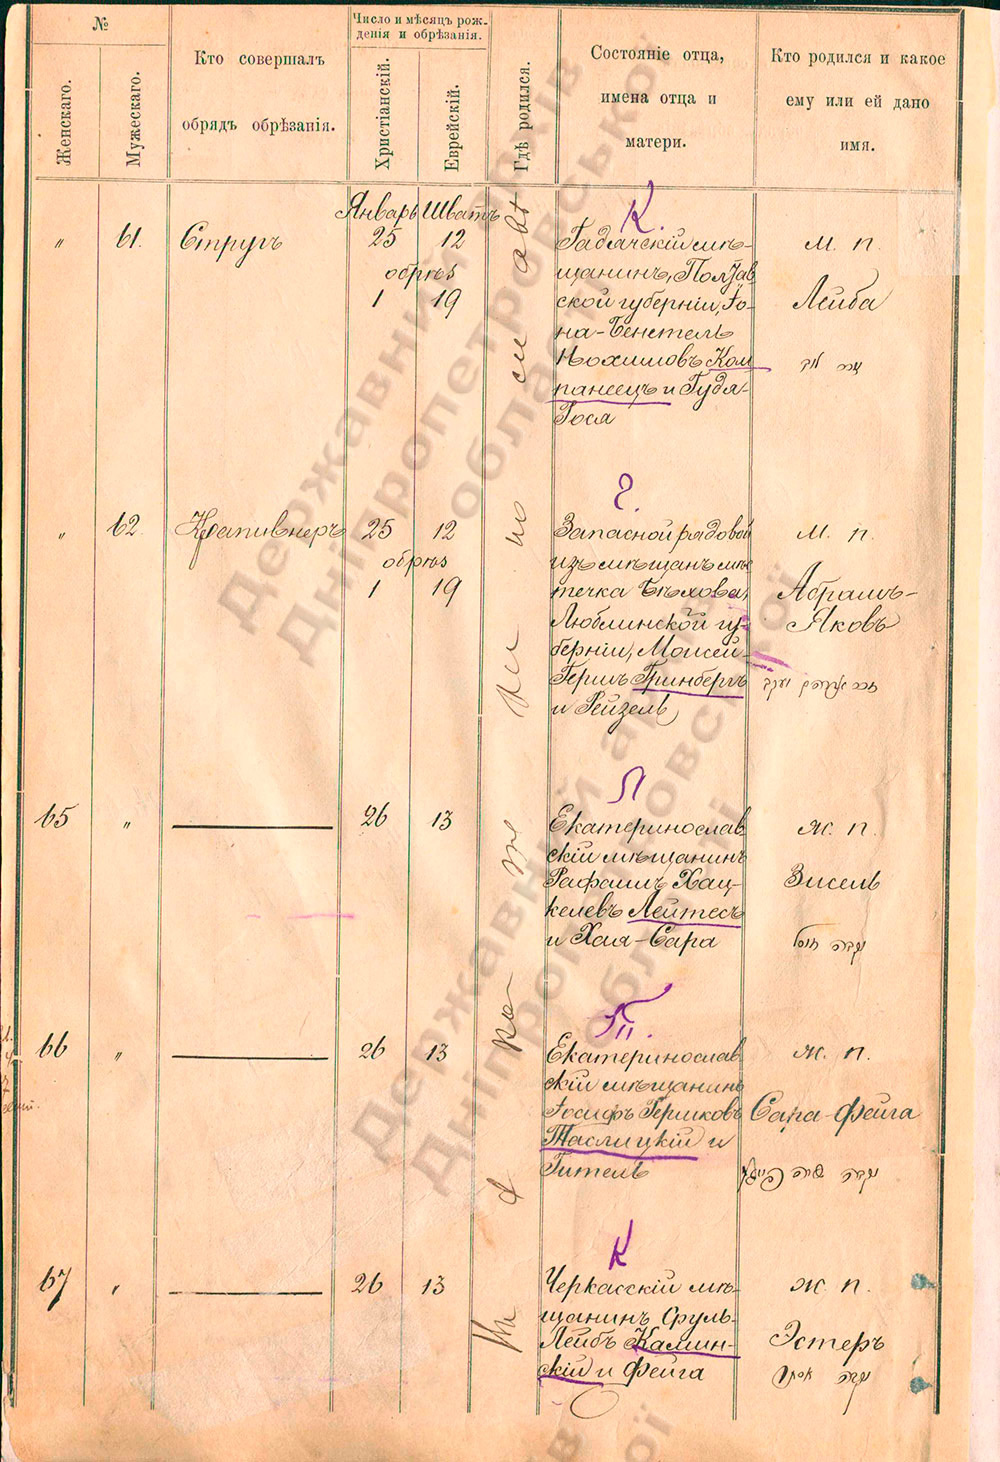 №
Женскаго.
Мужескаго.
Кто совершалъ
обрядъ обрѣзанія.
Число и мѣсяцъ рож-
денія и обрѣзанія.
Христіанскій.
Еврейскій.
Гдѣ родился.
Состояніе отца,
имена отца и
матери.
Кто родился и какое
ему или ей дано
имя.
Январь Шватъ
К.
„ 61. Стругъ 25 12
обрѣз
1 19
Гадячскій мѣ-
щанинъ, Полтав
ской губерніи, Іо-
на-Бенстель
Нохимовъ Ком
панеецъ и Гудя-
Тося
м. п.
Лейба
Г.
„ 62. Крапивнеръ 25 12
обрѣз
1 19
Запасной рядовой
изъ мѣщанъ мѣс
течка Бѣхова,
Люблинской гу-
берніи, Мойсей-
Гершъ Гринбергъ
и Рейзель
м. п.
Абрамъ-
Яковъ
Л
65 „ 26 13
Екатеринослав
скій мѣщанинъ
Рафаилъ Хац-
келевъ Лейтесъ
и Хая-Сара
ж. п.
Зисель
Т.
66 „ 26 13
Екатеринослав
скій мѣщанинъ
Іосифъ Гершковъ
Таслицкій и
Гитель
ж. п.
Сара-Фейга
К
67 „ 26 13
Черкасскій мѣ-
щанинъ Сруль-
Лейбъ Камин-
скій и Фейга
ж. п.
Эстеръ
Державний архів
Дніпропетровської
області
Державний архів
Дніпропетровської
області